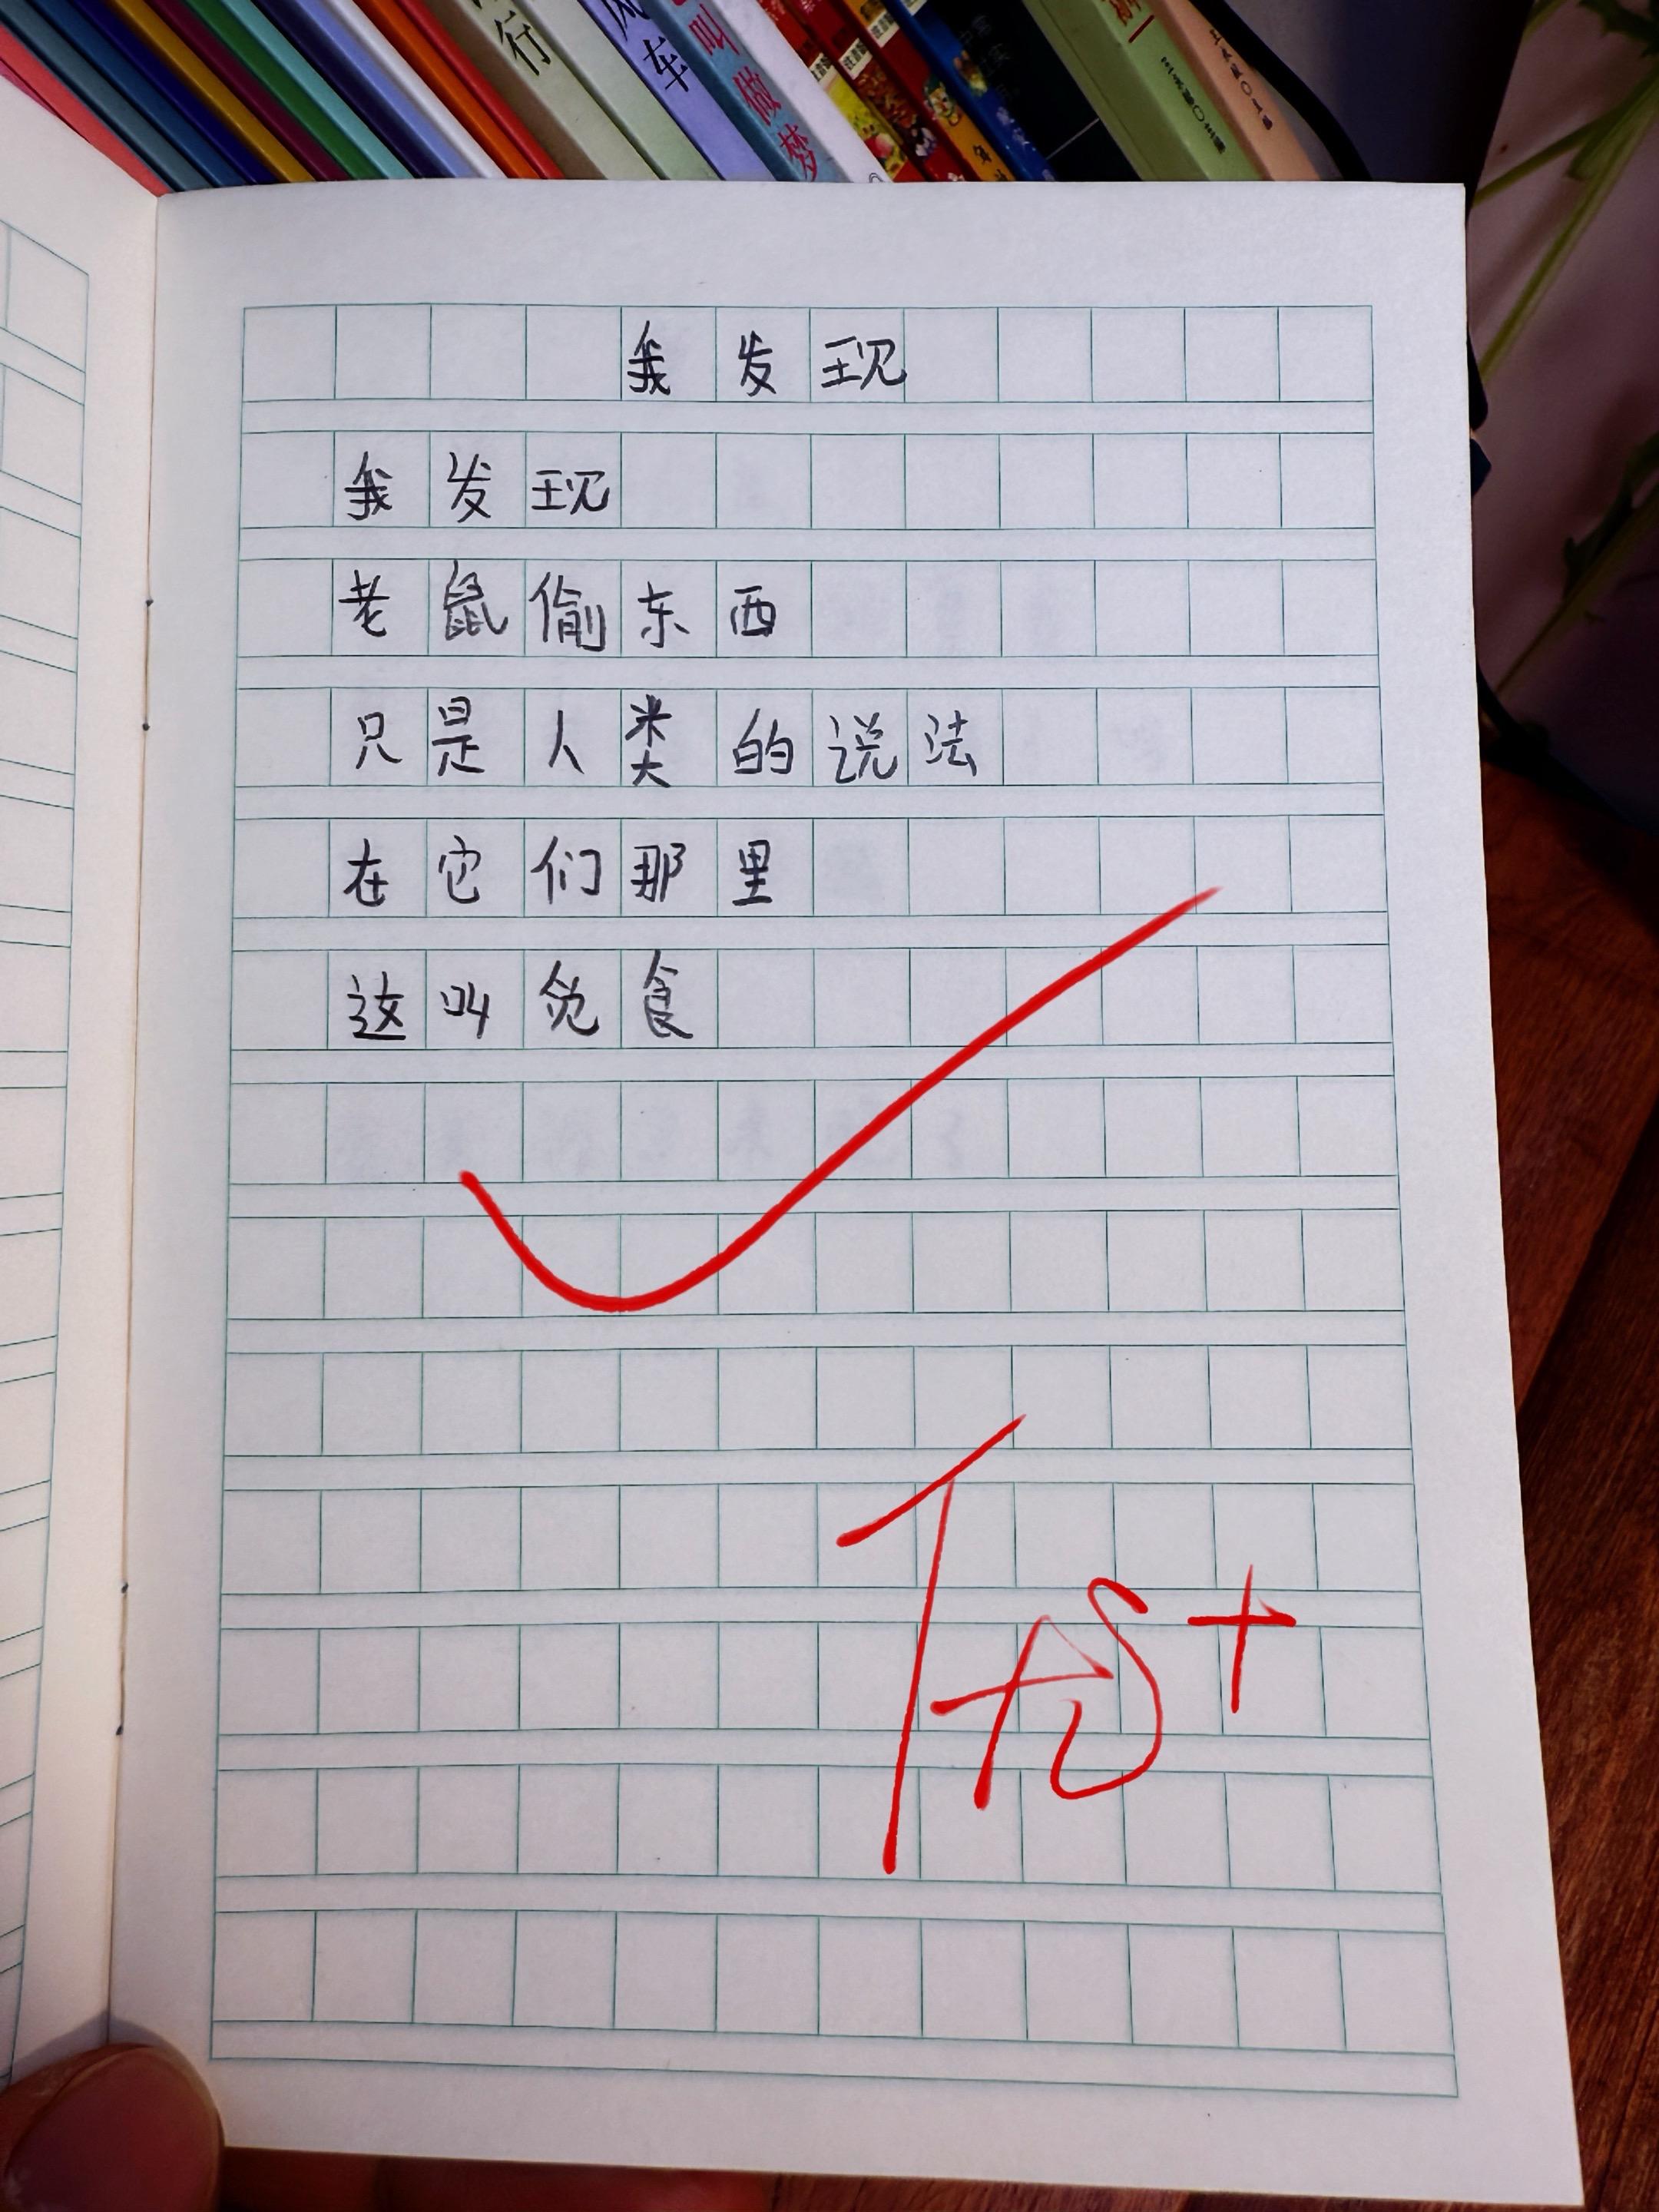 行
风车
叫做梦
我发现
我发现
老鼠偷东西
只是人类的说法
在它们那里
这叫觅食